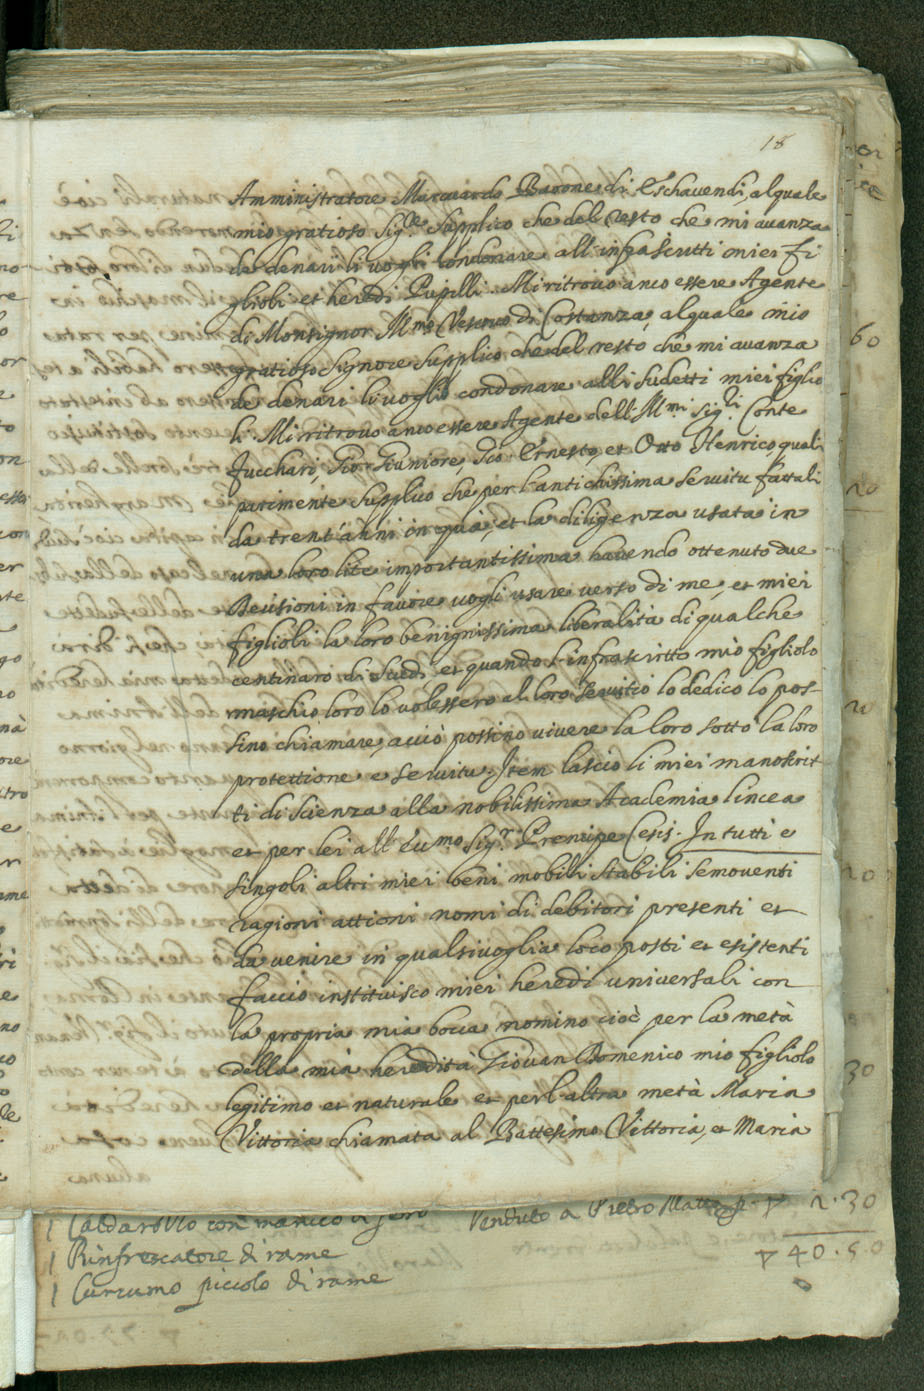 18
Amministratore Marcuardo Barone di Eschauendi, al quale
mio gratioso Sig.re Supplico che del resto che mi auanza
de denari li uogli condonare all infrascritti miei fi
glioli et heredi Pupilli. Mi ritrouo anco essere Agente
di Monsignor Ill.mo Vescouo di Costanza, al quale mio
gratioso Signore supplico che del resto che mi auanza
de denari li uoglia condonare alli sudetti miei figlio
li. Mi ritrouo anco essere Agente dell'Ill.mi Sig.ri Conte
Fucchari, Gio: Giuniore, Gio: Ernesto, et Otto Henrico, quali
parimente supplico che per l'antichissima seruitu fattali
da trent'anni in quà, et la diligenza usata in
una loro lite importantissima hauendo ottenuto due
Decisioni in fauore uogli usare uerso di me, et miei
figlioli la loro benignissima liberalità di qualche
centinaro di scudi et quando l'infrascritto mio figliolo
maschio loro lo uolessero al loro seruitio lo dedico lo pos-
sino chiamare, acciò possino uiuere la loro sotto la loro
protettione e seruitu. Item lascio li miei manoscrit
ti di scienza alla nobilissima Academia lincea
et per lei all Ecc.mo Sig.r Prencipe Cesis. In tutti e
singoli altri miei beni mobili stabili semouenti
ragioni attioni nomi di debitori presenti et
da uenire in qualsiuoglia loco posti et esistenti
faccio instituisco miei heredi uniuersali con
la propria mia bocca nomino cioè per la metà
della mia heredità Giouan Domenico mio figliolo
legitimo et naturale et per l'altra metà Maria
Vittoria chiamata al Battesimo Vittoria, et Maria
1 Caldarozzo con manico di fero Venduto a Pietro 2.30
1 Rinfrescatore di rame 40.50
1 Cuccumo piccolo di rame
60
20
20
20
30